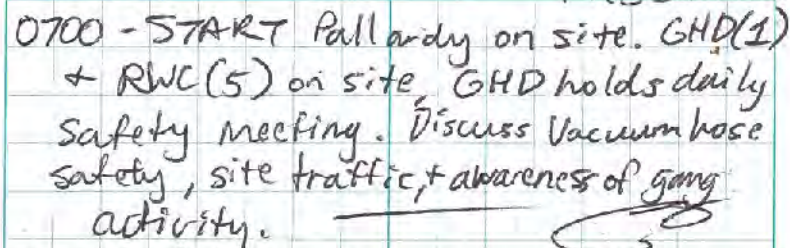 0700 - START Pallardy on site. GHD(1)
+ RWC(5) on site, GHD holds daily
safety meeting. Discuss Vacuum hose
safety, site traffic, + awareness of gang
activity.